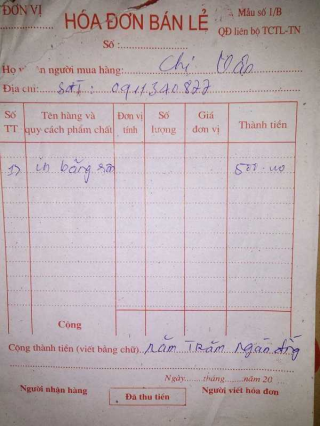 ĐƠN VỊ
HÓA ĐƠN BÁN LẺ
Mẫu số 1/B
QĐ liên bộ TCTL-TN
Số :
Họ và tên người mua hàng: Chị Vân
Địa chỉ: SĐT: 0943340877
Số TT
Tên hàng và quy cách phẩm chất
Đơn vị tính
Số lượng
Giá đơn vị
Thành tiền
1) in băng rôn 500.000
Cộng
Cộng thành tiền (viết bằng chữ) Năm trăm ngàn đồng
Ngày...... tháng...... năm 20
Người nhận hàng
Đã thu tiền
Người viết hóa đơn